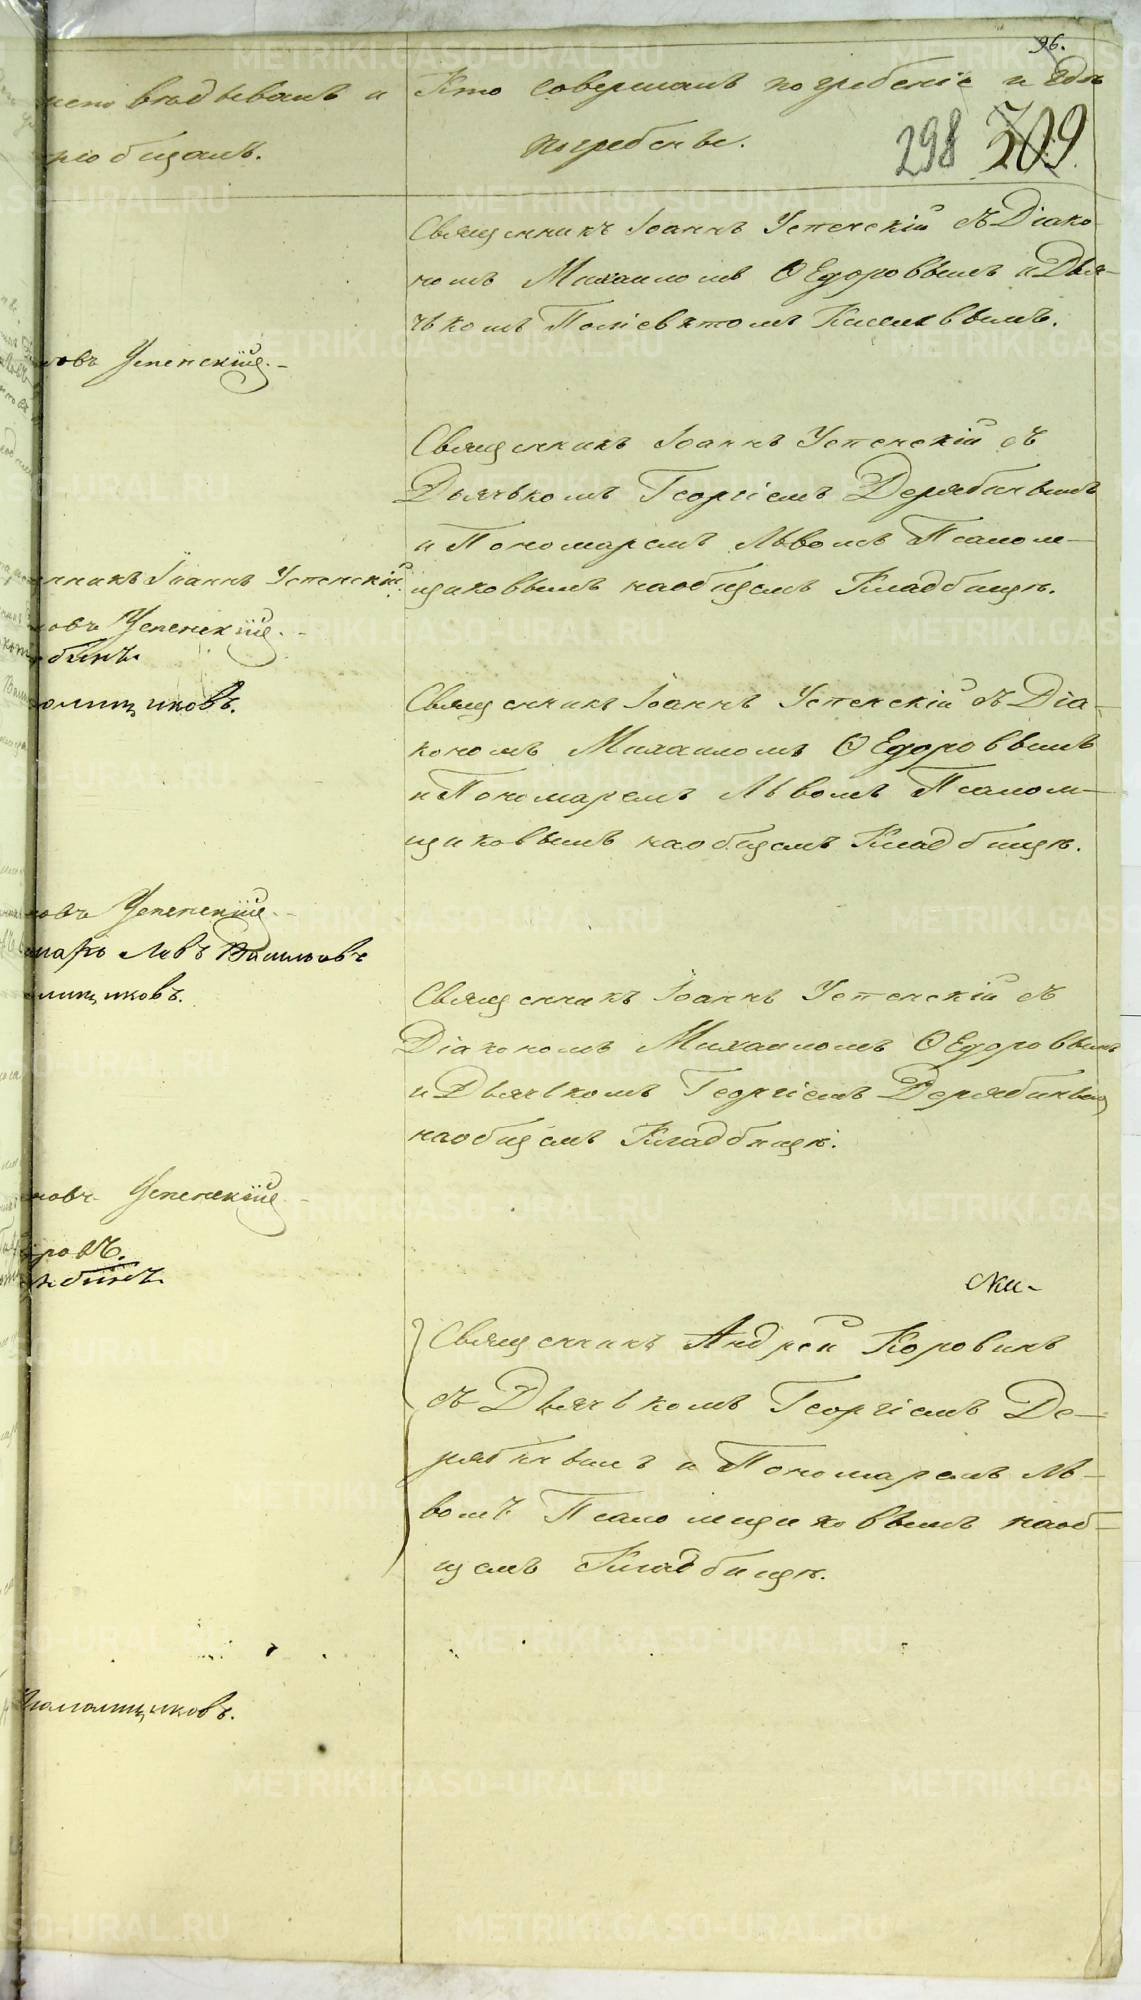 96.
исповѣдывалъ и
Кто совершалъ погребеніе и гдѣ
пріобщалъ.
погребены.
298 309
Священникъ Іоаннъ Успенскій съ Діако-
номъ Михаиломъ Ѳедоровымъ и Дья-
чькомъ
овъ Успенскій.
Священникъ Іоаннъ Успенскій съ
Дьячькомъ Георгіемъ Дерябинымъ
и Пономаремъ Львомъ Псалом-
щиковымъ наобщемъ Кладбищѣ.
нникъ Іоаннъ Успенскій
овъ Успенскій.
бинъ.
омщиковъ.
Священникъ Іоаннъ Успенскій съ Діа-
кономъ Михаиломъ Ѳедоровымъ
и Пономаремъ Львомъ Псалом-
щиковымъ наобщемъ Кладбищѣ.
новъ Успенскій
марь Левъ Васильевъ
омщиковъ.
Священникъ Іоаннъ Успенскій съ
Діакономъ Михаиломъ Ѳедоровымъ
и Дьячькомъ Георгіемъ Дерябинымъ
наобщемъ Кладбищѣ.
новъ Успенскій
ровъ.
бинъ.
Священникъ Андрей Коровинъ
съ Дьячькомъ Георгіемъ Де-
рябинымъ и Пономаремъ Ль-
вомъ Псаломщиковымъ наоб-
щемъ Кладбищѣ.
Псаломщиковъ.
METRIKI.GASO-URAL.RU